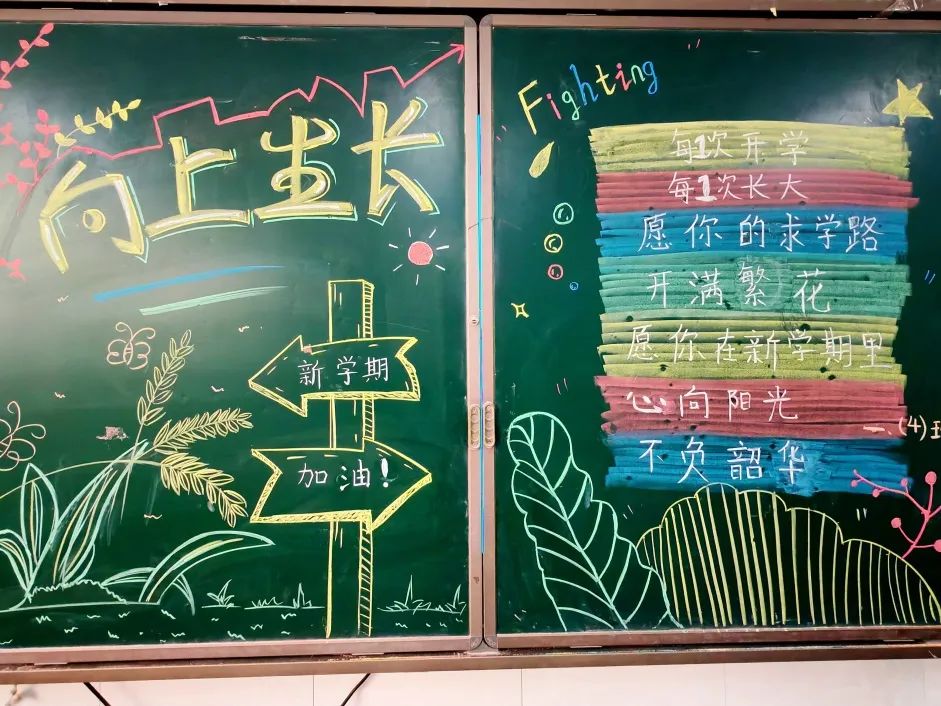 向上生长
新学期
加油!
Fighting
每1次开学
每1次长大
愿你的求学路
开满繁花
愿你在新学期里
心向阳光
不负韶华
一.(4)班